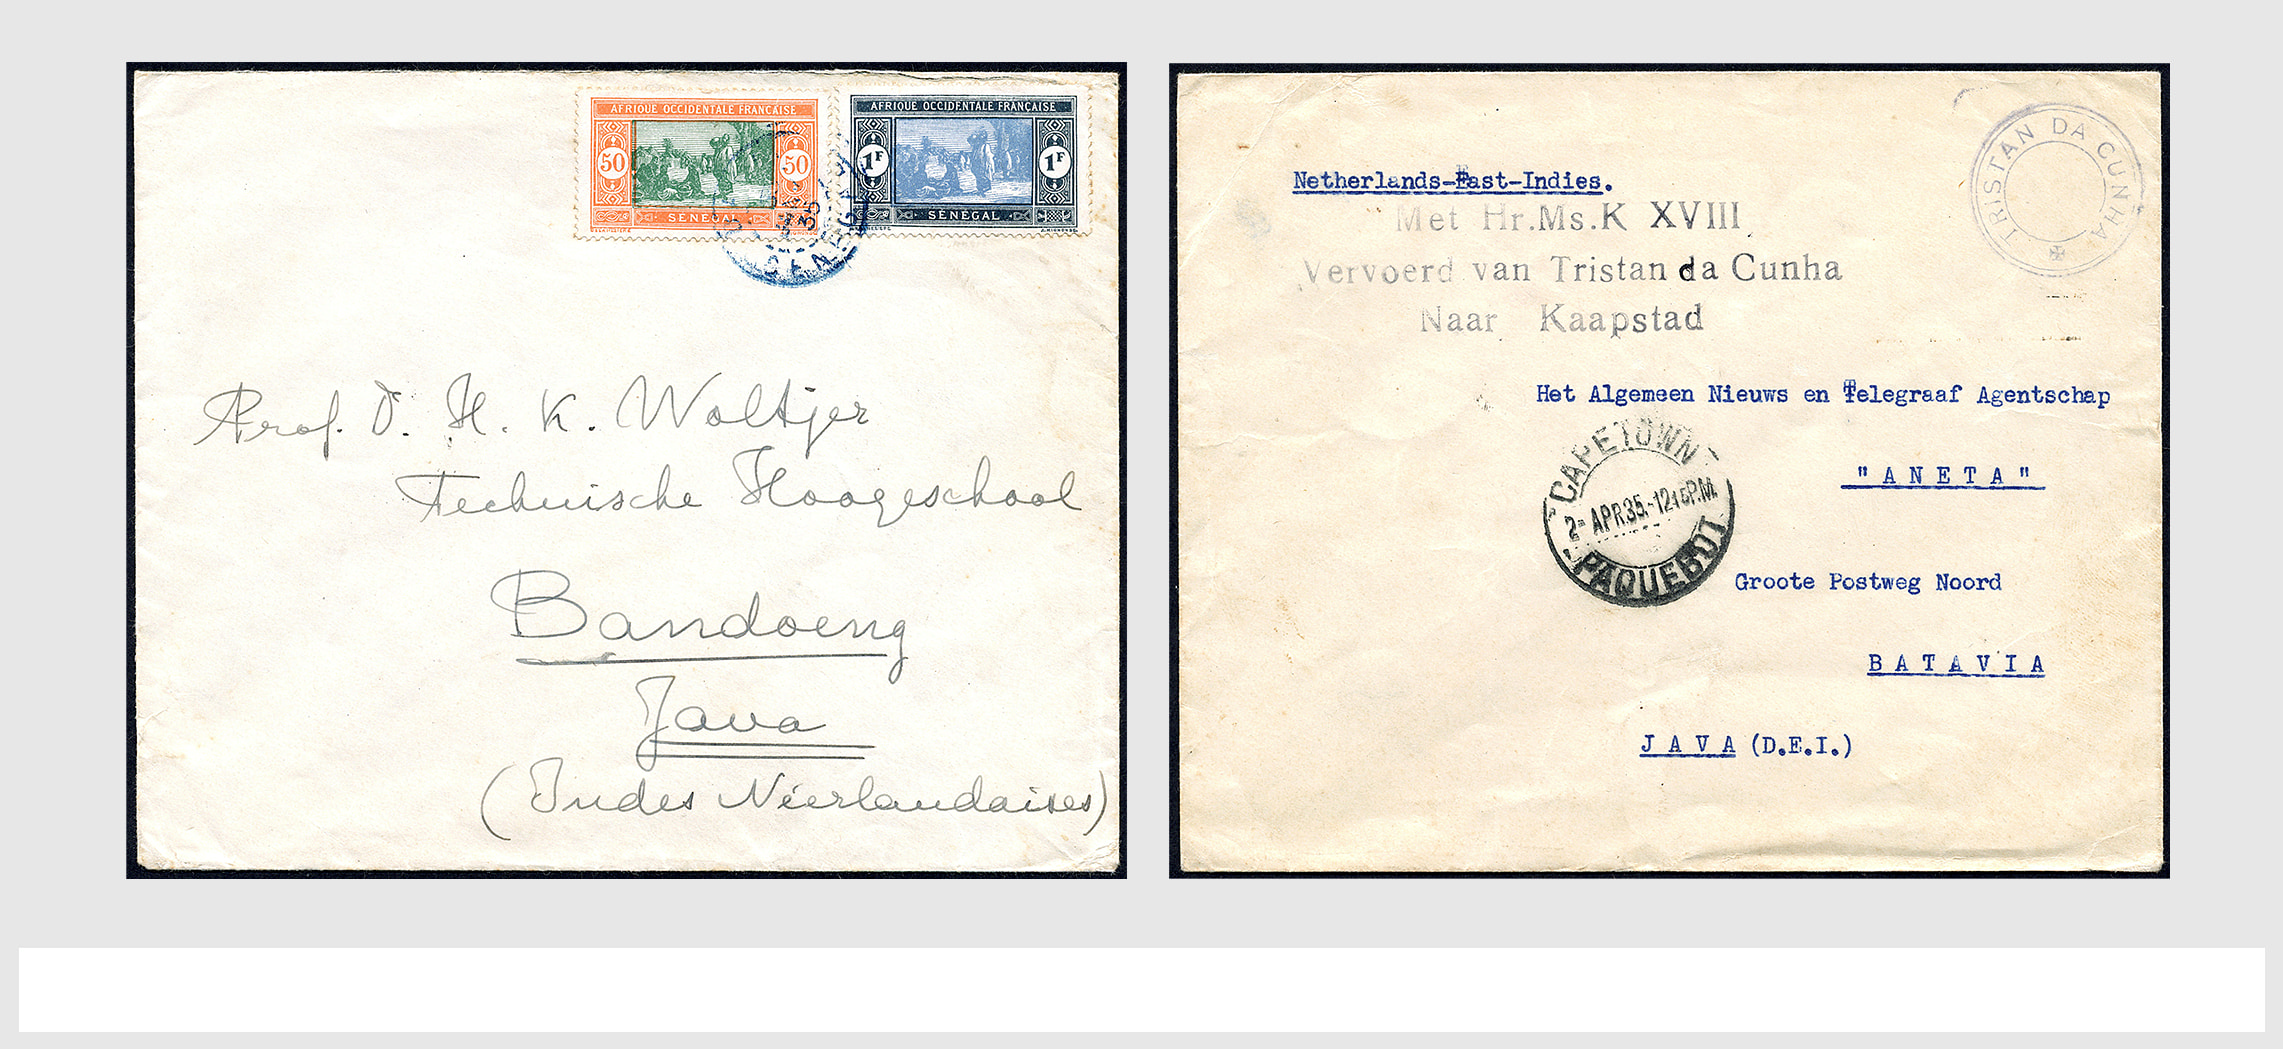 AFRIQUE OCCIDENTALE FRANÇAISE
50 50
SÉNÉGAL
AFRIQUE OCCIDENTALE FRANÇAISE
1F 1F
SÉNÉGAL
35
SENEGAL
Prof. D. H. K. Woltjer
Technische Hoogeschool
Bandoeng
Java
(Indes Néerlandaises)
TRISTAN DA CUNHA
Netherlands-East-Indies.
Met Hr.Ms.K XVIII
Vervoerd van Tristan da Cunha
Naar Kaapstad
Het Algemeen Nieuws en Telegraaf Agentschap
"ANETA"
CAPETOWN
2- APR 35.-1215P.M.
PAQUEBOT
Groote Postweg Noord
BATAVIA
JAVA (D.E.I.)